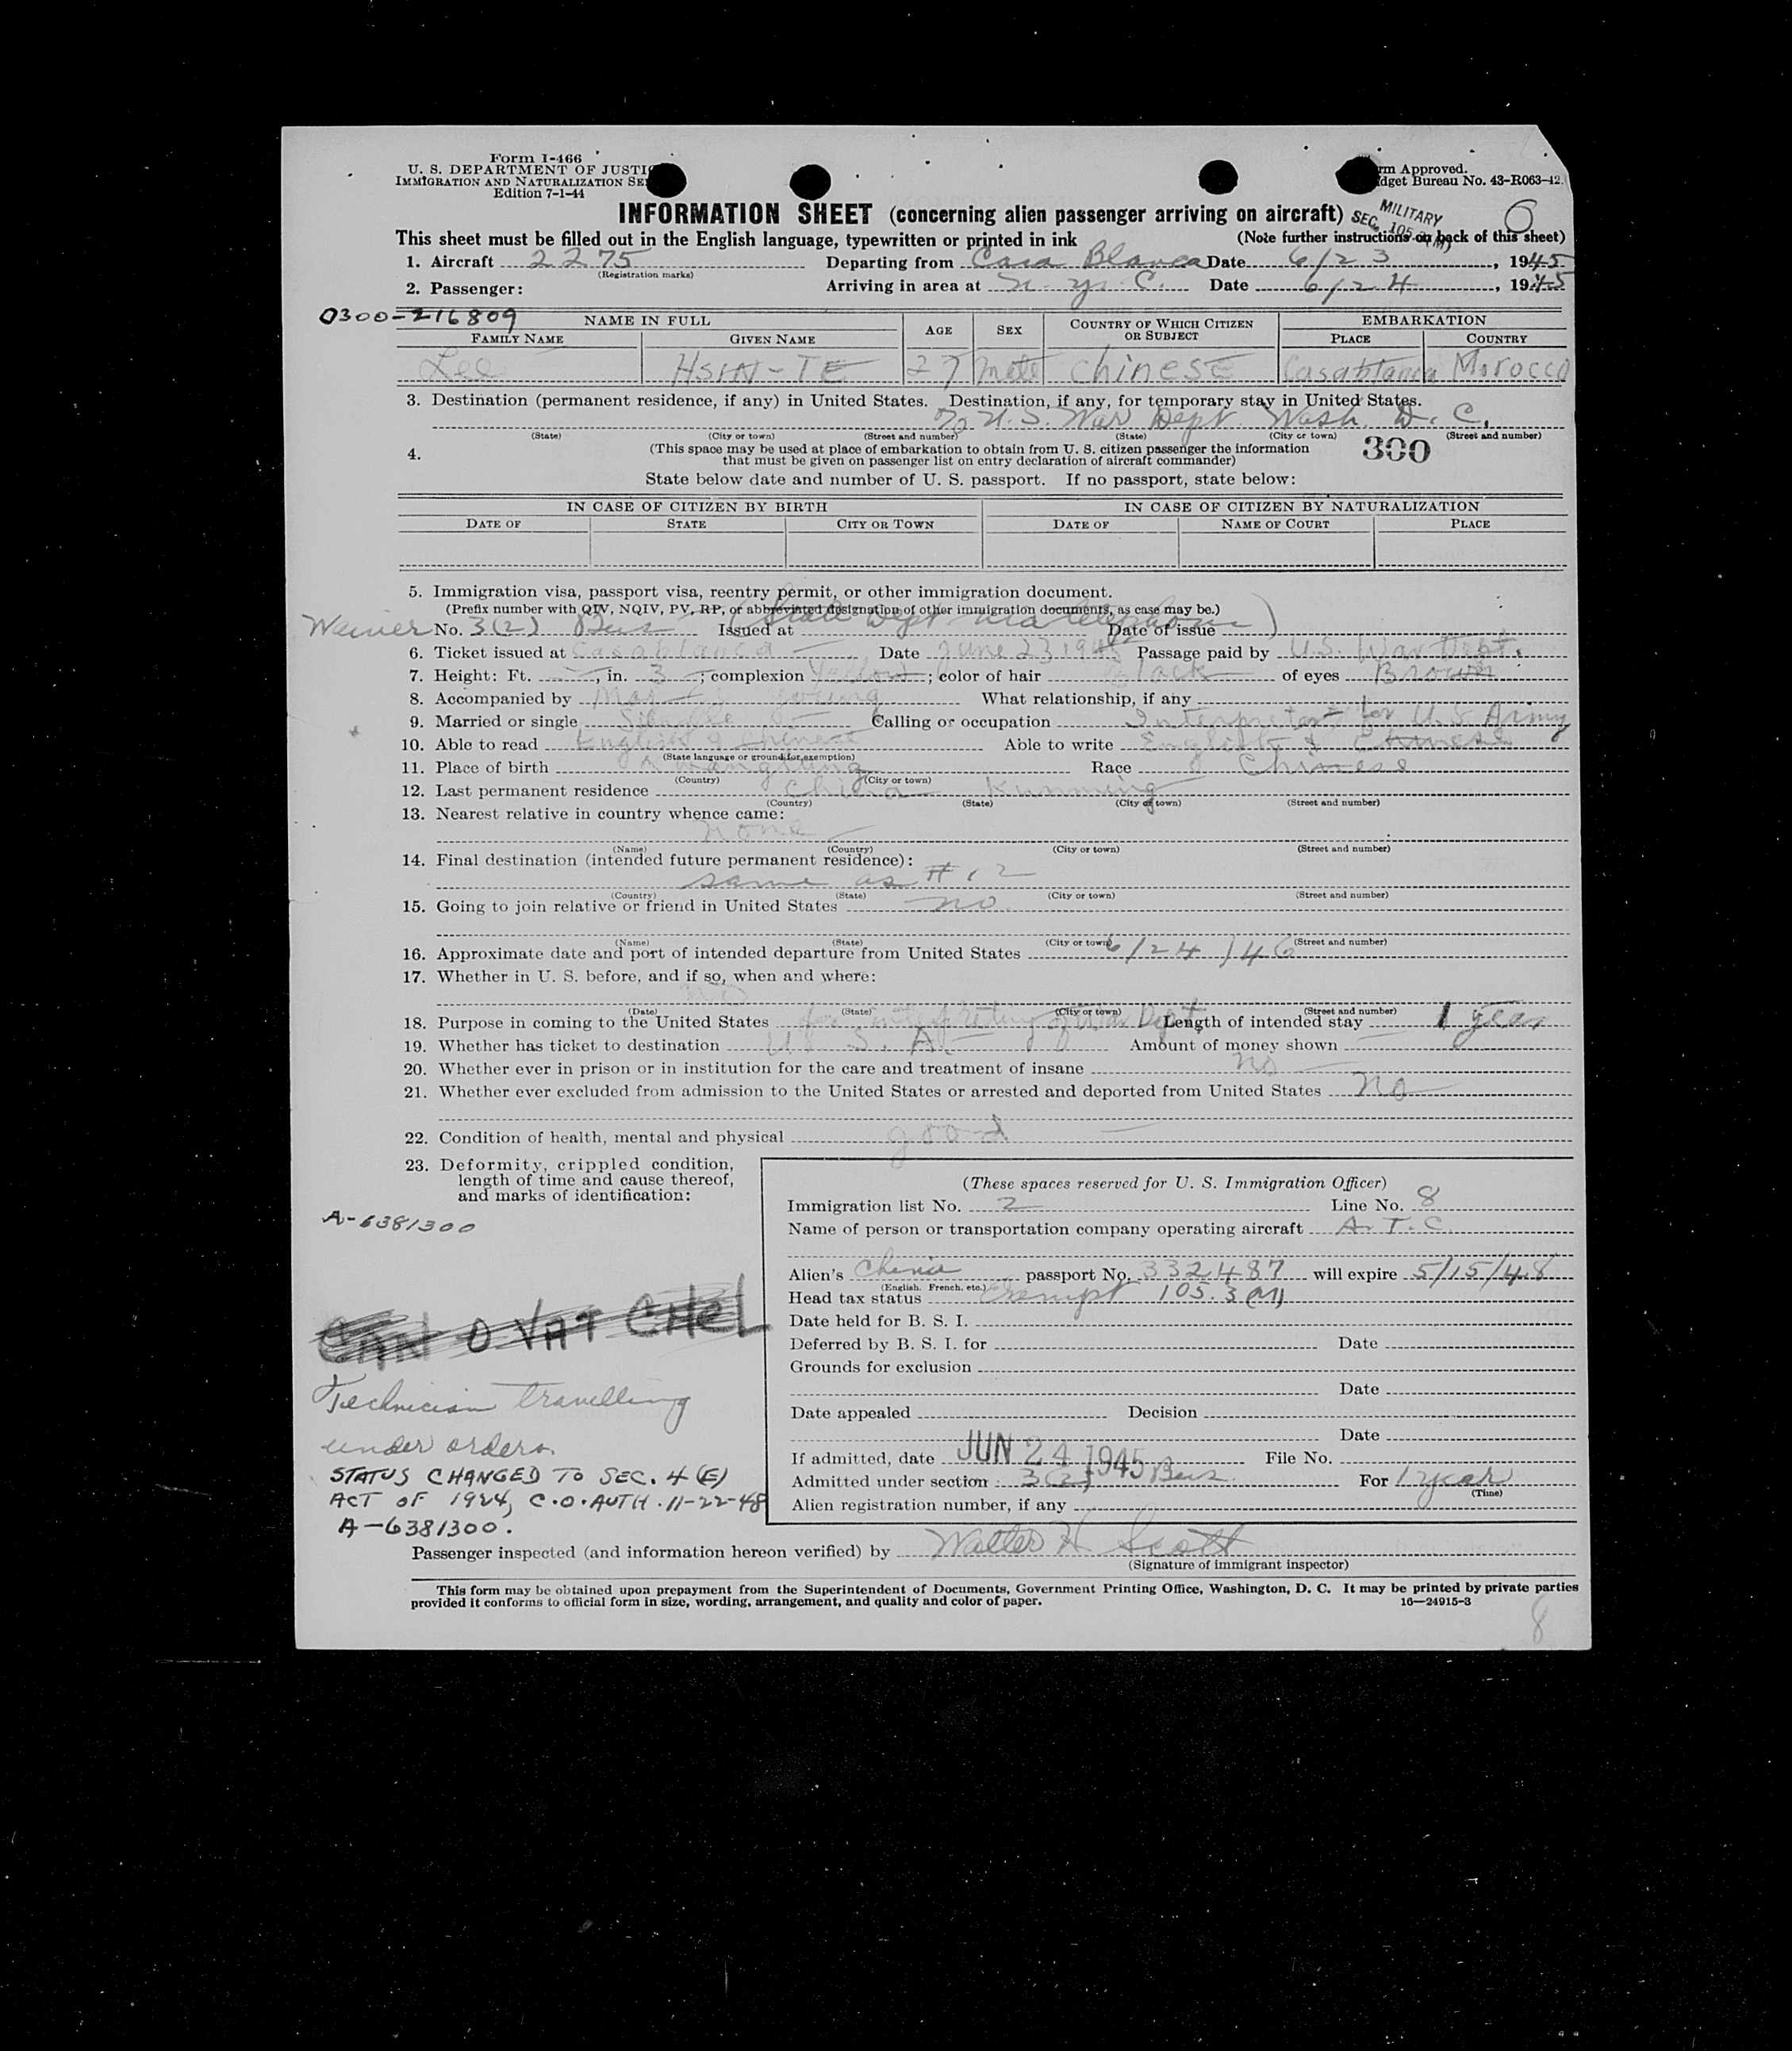 Form I-466
U. S. DEPARTMENT OF JUSTIC
IMMIGRATION AND NATURALIZATION SE
Edition 7-1-44
rm Approved.
dget Bureau No. 43-R063-42.
INFORMATION SHEET (concerning alien passenger arriving on aircraft)
MILITARY
SEC. 105.3(M)
This sheet must be filled out in the English language, typewritten or printed in ink (Note further instructions on back of this sheet)
1. Aircraft 2275 Departing from Casa Blanca Date 6/23, 1945
(Registration marks)
2. Passenger: Arriving in area at N.Y.C. Date 6/24, 1945
0300-216809
NAME IN FULL AGE SEX COUNTRY OF WHICH CITIZEN OR SUBJECT EMBARKATION
FAMILY NAME GIVEN NAME PLACE COUNTRY
Lee HSIN-TE 27 Male Chinese Casablanca Morocco
3. Destination (permanent residence, if any) in United States. Destination, if any, for temporary stay in United States.
% U.S. War Dept. Wash. D.C.
(State) (City or town) (Street and number) (State) (City or town) (Street and number)
4. (This space may be used at place of embarkation to obtain from U. S. citizen passenger the information
that must be given on passenger list on entry declaration of aircraft commander)
300
State below date and number of U. S. passport. If no passport, state below:
IN CASE OF CITIZEN BY BIRTH IN CASE OF CITIZEN BY NATURALIZATION
DATE OF STATE CITY OR TOWN DATE OF NAME OF COURT PLACE
5. Immigration visa, passport visa, reentry permit, or other immigration document.
(Prefix number with QIV, NQIV, PV, RP, or abbreviated designation of other immigration documents, as case may be.)
(State Dept via telephone)
Waiver No. 3(2) Bus Issued at Date of issue
6. Ticket issued at Casablanca Date June 23 1945 Passage paid by U.S. War Dept.
7. Height: Ft. , in. 3 ; complexion Yellow ; color of hair Black of eyes Brown
8. Accompanied by Young What relationship, if any
9. Married or single Single Calling or occupation Interpreter for U.S. Army
10. Able to read English & Chinese Able to write English & Chinese
(State language or ground for exemption)
11. Place of birth Kwangtung Race Chinese
(Country) (City or town)
12. Last permanent residence China Kunming
(Country) (State) (City or town) (Street and number)
13. Nearest relative in country whence came:
None
(Name) (Country) (City or town) (Street and number)
14. Final destination (intended future permanent residence):
same as #12
(Country) (State) (City or town) (Street and number)
15. Going to join relative or friend in United States no
(Name) (State) (City or town) (Street and number)
16. Approximate date and port of intended departure from United States 6/24/46
17. Whether in U. S. before, and if so, when and where:
No
(Date) (State) (City or town) (Street and number)
18. Purpose in coming to the United States for interpreting of War Dept. Length of intended stay 1 year
19. Whether has ticket to destination U.S.A. Amount of money shown
20. Whether ever in prison or in institution for the care and treatment of insane no
21. Whether ever excluded from admission to the United States or arrested and deported from United States no
22. Condition of health, mental and physical good
23. Deformity, crippled condition,
length of time and cause thereof,
and marks of identification:
A-6381300
Technician travelling
under orders.
STATUS CHANGED TO SEC. 4 (E)
ACT OF 1924, C.O. AUTH. 11-22-48
A-6381300.
(These spaces reserved for U. S. Immigration Officer)
Immigration list No. 2 Line No. 8
Name of person or transportation company operating aircraft A.T.C.
Alien's China passport No. 332487 will expire 5/15/48
(English, French, etc.)
Head tax status Exempt 105.3(M)
Date held for B. S. I.
Deferred by B. S. I. for Date
Grounds for exclusion
Date
Date appealed Decision
Date
If admitted, date JUN 24 1945 File No.
Admitted under section 3(2) Bus. For 1 year
(Time)
Alien registration number, if any
Passenger inspected (and information hereon verified) by Walter H Scott
(Signature of immigrant inspector)
This form may be obtained upon prepayment from the Superintendent of Documents, Government Printing Office, Washington, D. C. It may be printed by private parties
provided it conforms to official form in size, wording, arrangement, and quality and color of paper. 16—24915-3
8